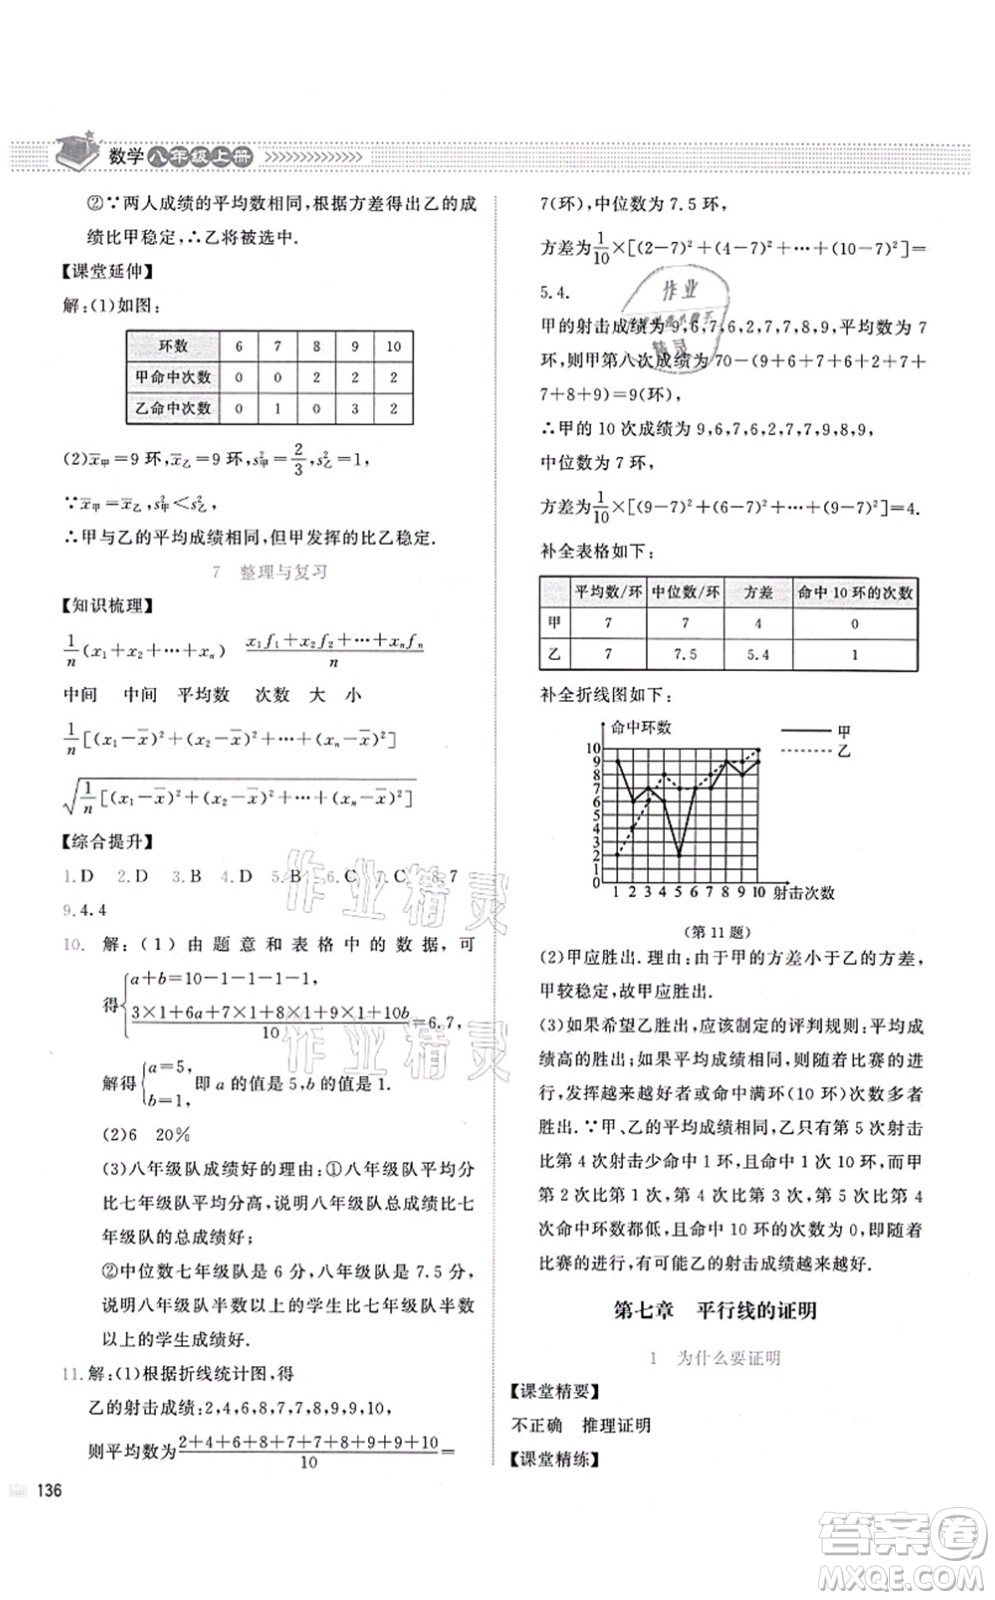 数学八年级上册
②∵两人成绩的平均数相同,根据方差得出乙的成
绩比甲稳定,∴乙将被选中.
【课堂延伸】
解:(1)如图:
环数 6 7 8 9 10
甲命中次数 0 0 2 2 2
乙命中次数 0 1 0 3 2
(2)x̄甲=9 环,x̄乙=9 环,s²甲=2/3,s²乙=1,
∵x̄甲=x̄乙,s²甲<s²乙,
∴甲与乙的平均成绩相同,但甲发挥的比乙稳定.
7 整理与复习
【知识梳理】
1/n(x₁+x₂+…+xₙ) (x₁f₁+x₂f₂+…+xₙfₙ)/n
中间 中间 平均数 次数 大 小
1/n[(x₁-x̄)²+(x₂-x̄)²+…+(xₙ-x̄)²]
√(1/n[(x₁-x̄)²+(x₂-x̄)²+…+(xₙ-x̄)²])
【综合提升】
1.D 2.D 3.B 4.D 5.B 6.C 7.C 8.7
9.4.4
10. 解:(1)由题意和表格中的数据,可
得{a+b=10-1-1-1-1,
(3×1+6a+7×1+8×1+9×1+10b)/10=6.7,
解得{a=5, b=1, 即 a 的值是 5,b 的值是 1.
(2)6 20%
(3)八年级队成绩好的理由:①八年级队平均分
比七年级队平均分高,说明八年级队总成绩比七
年级队的总成绩好;
②中位数七年级队是 6 分,八年级队是 7.5 分,
说明八年级队半数以上的学生比七年级队半数
以上的学生成绩好.
11.解:(1)根据折线统计图,得
乙的射击成绩:2,4,6,8,7,7,8,9,9,10,
则平均数为(2+4+6+8+7+7+8+9+9+10)/10=
136
7(环),中位数为 7.5 环,
方差为1/10×[(2-7)²+(4-7)²+…+(10-7)²]=
5.4.
甲的射击成绩为 9,6,7,6,2,7,7,8,9,平均数为 7
环,则甲第八次成绩为 70-(9+6+7+6+2+
7+7+8+9)=9(环),
∴甲的 10 次成绩为 9,6,7,6,2,7,7,9,8,9.
中位数为 7 环,
方差为1/10×[(9-7)²+(6-7)²+…+(9-7)²]=4.
补全表格如下:
平均数/环 中位数/环 方差 命中 10 环的次数
甲 7 7 4 0
乙 7 7.5 5.4 1
补全折线图如下:
命中环数
甲
乙
10
9
8
7
6
5
4
3
2
1
0
1 2 3 4 5 6 7 8 9 10 射击次数
(第 11 题)
(2)甲应胜出.理由:由于甲的方差小于乙的方差,
甲较稳定,故甲应胜出.
(3)如果希望乙胜出,应该制定的评判规则:平均成
绩高的胜出;如果平均成绩相同,则随着比赛的进
行,发挥越来越好者或命中满环(10 环)次数多者
胜出.∵甲、乙的平均成绩相同,乙只有第 5 次射击
比第 4 次射击少命中 1 环,且命中 1 次 10 环,而甲
第 2 次比第 1 次、第 4 次比第 3 次、第 5 次比第 4
次命中环数都低,且命中 10 环的次数为 0,即随着
比赛的进行,有可能乙的射击成绩越来越好.
第七章 平行线的证明
1 为什么要证明
【课堂精要】
不正确 推理证明
【课堂精练】
作业精灵
作业精灵
作业
精灵
答案卷
MXQE.COM